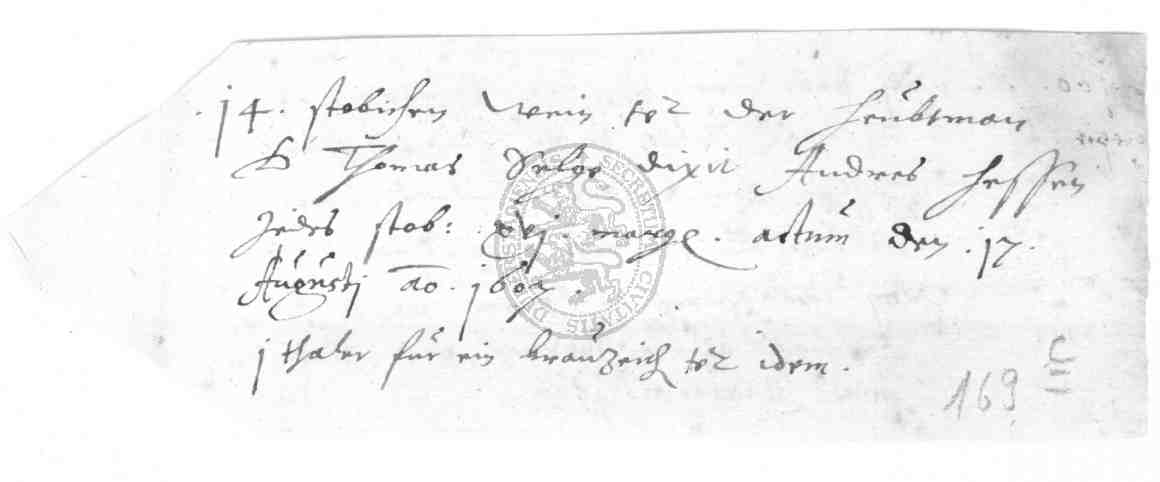 .14. stobichen Wein tt der Heubtman
H Thomas Selge dixit Andres Hessen
Jedes stob: xvj. margk. actum den .17.
Augusti ao. 1607.
j thaler für ein brauzeich tt idem.
169
SECRETUM CIVITATIS